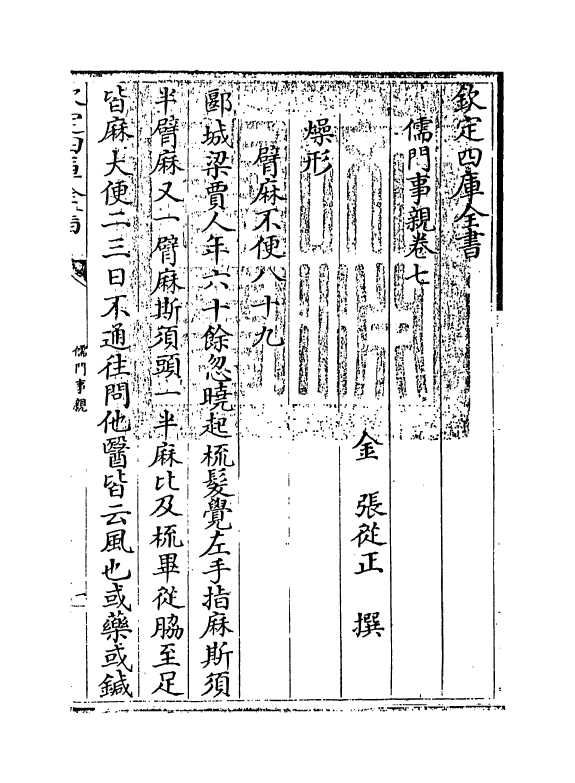 欽定四庫全書
儒門事親卷七
金 張從正 撰
燥形
臂麻不便八十九
郾城梁賈人年六十餘忽曉起梳髮覺左手指麻斯須
半臂麻又一臂麻斯須頭一半麻比及梳畢從脇至足
皆麻大便二三日不通往問他醫皆云風也或藥或鍼
欽定四庫全書
儒門事親
一